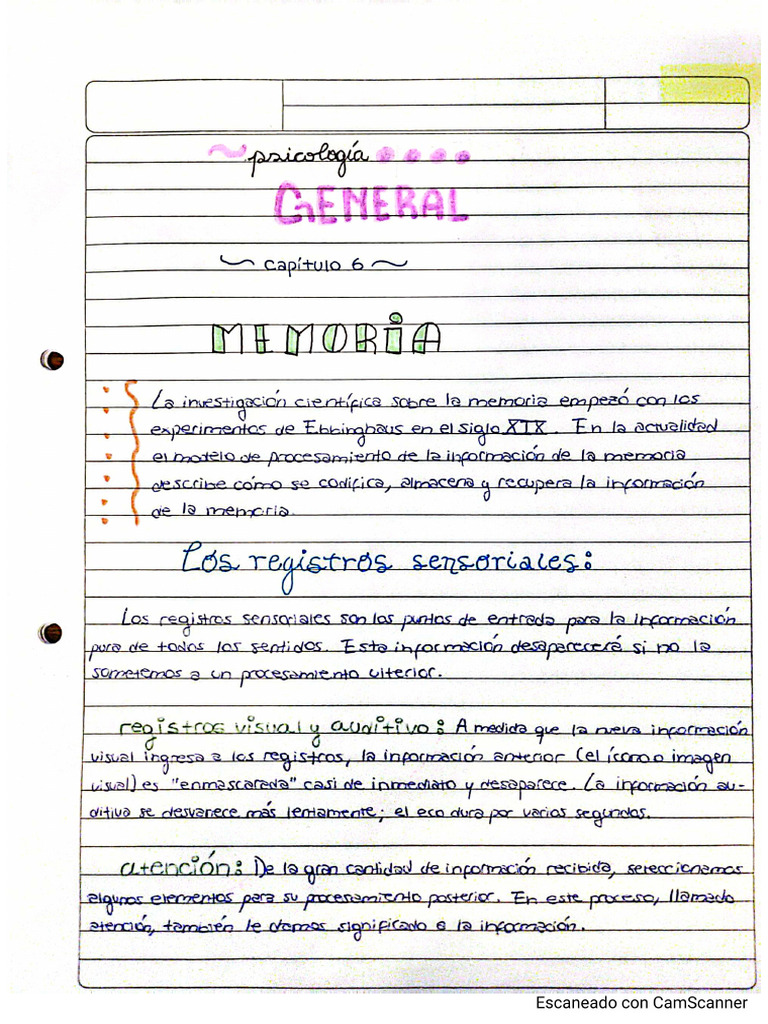 psicología
GENERAL
capítulo 6
MEMORiA
La investigación científica sobre la memoria empezó con los
experimentos de Ebbinghaus en el siglo XIX. En la actualidad
el modelo de procesamiento de la información de la memoria
describe cómo se codifica, almacena y recupera la información
de la memoria.
Los registros sensoriales:
Los registros sensoriales son los puntos de entrada para la información
pura de todos los sentidos. Esta información desaparecerá si no la
sometemos a un procesamiento ulterior.
registros visual y auditivo: A medida que la nueva información
visual ingresa a los registros, la información anterior (el ícono o imagen
visual) es "enmascarada" casi de inmediato y desaparece. La información au-
ditiva se desvanece más lentamente; el eco dura por varios segundos.
atención: De la gran cantidad de información recibida, seleccionamos
algunos elementos para su procesamiento posterior. En este proceso, llamado
atención, también le damos significado a la información.
Escaneado con CamScanner